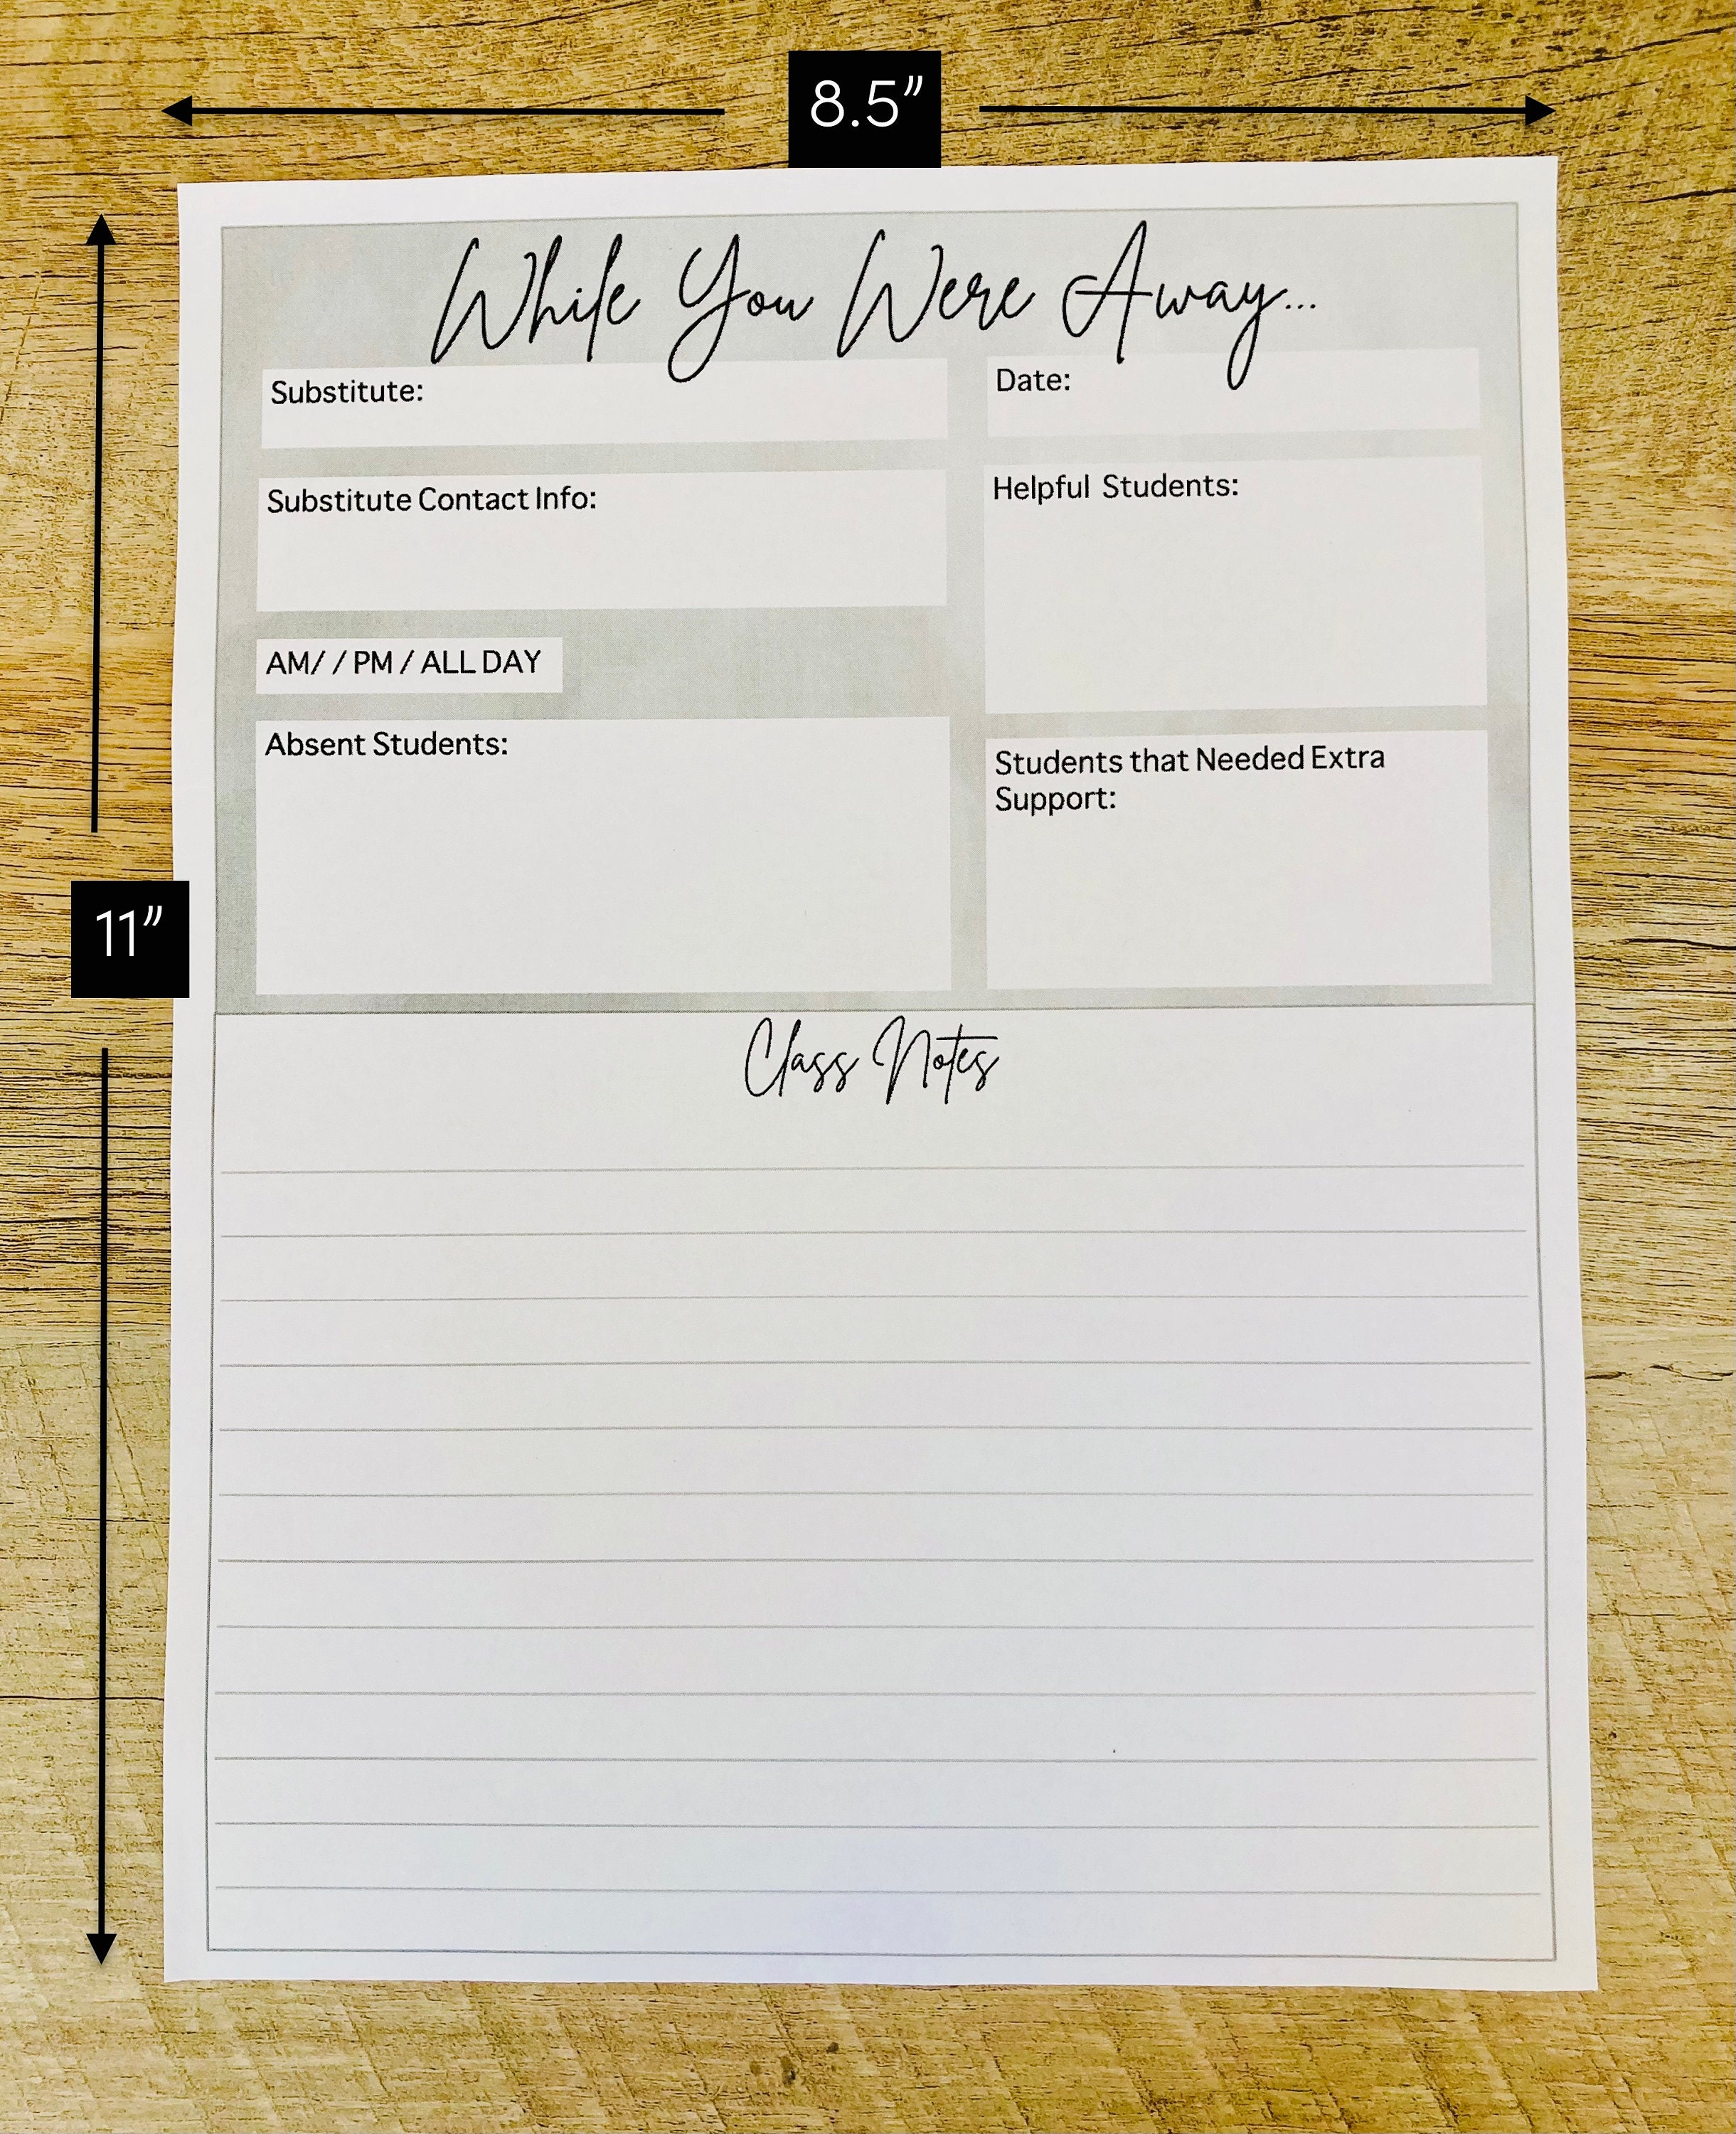 8.5"
While You Were Away...
Substitute:
Date:
Substitute Contact Info:
Helpful Students:
AM/ / PM / ALL DAY
Absent Students:
Students that Needed Extra
Support:
11"
Class Notes